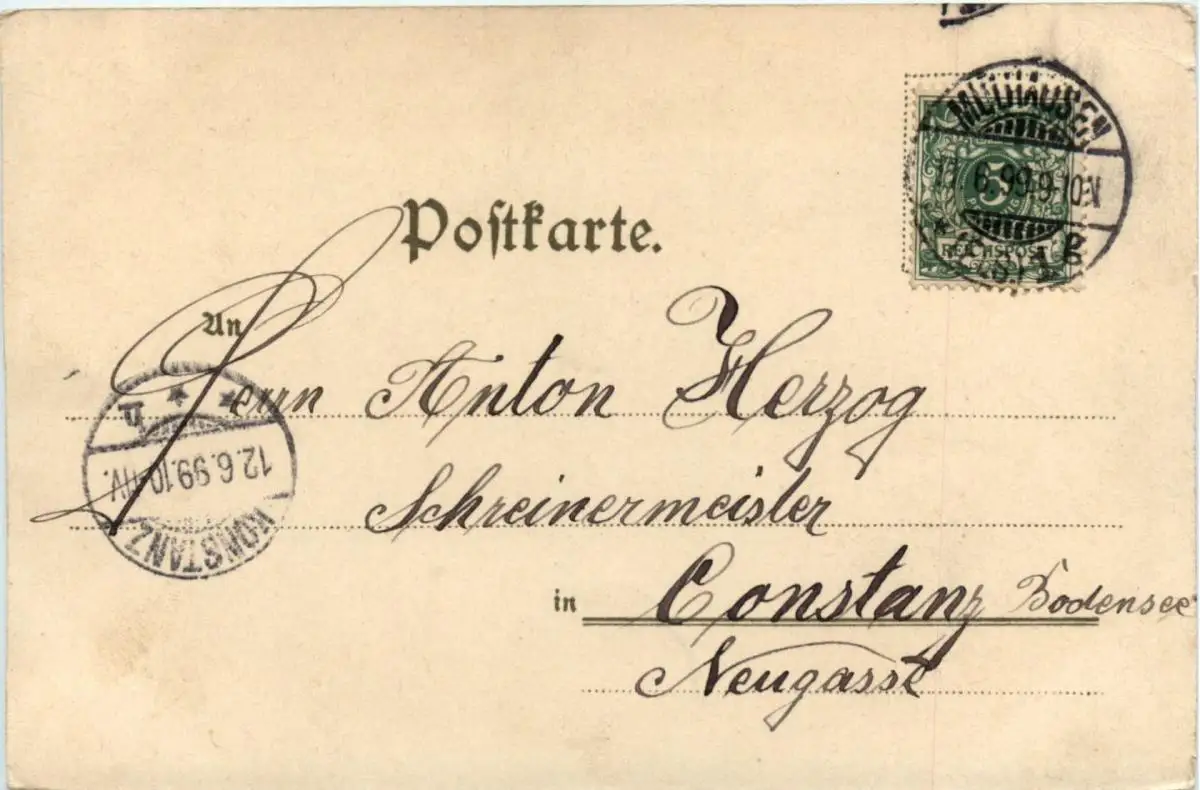 MÜLHAUSEN
11 6.99.9-10N
* (ELS.) 1 B
5
PFENNIG
REICHSPOST
Postkarte.
An
Herrn Anton Herzog
Schreinermeister
in Constanz Bodensee
Neugasse
KONSTANZ
12.6.99.10-11V.
* *